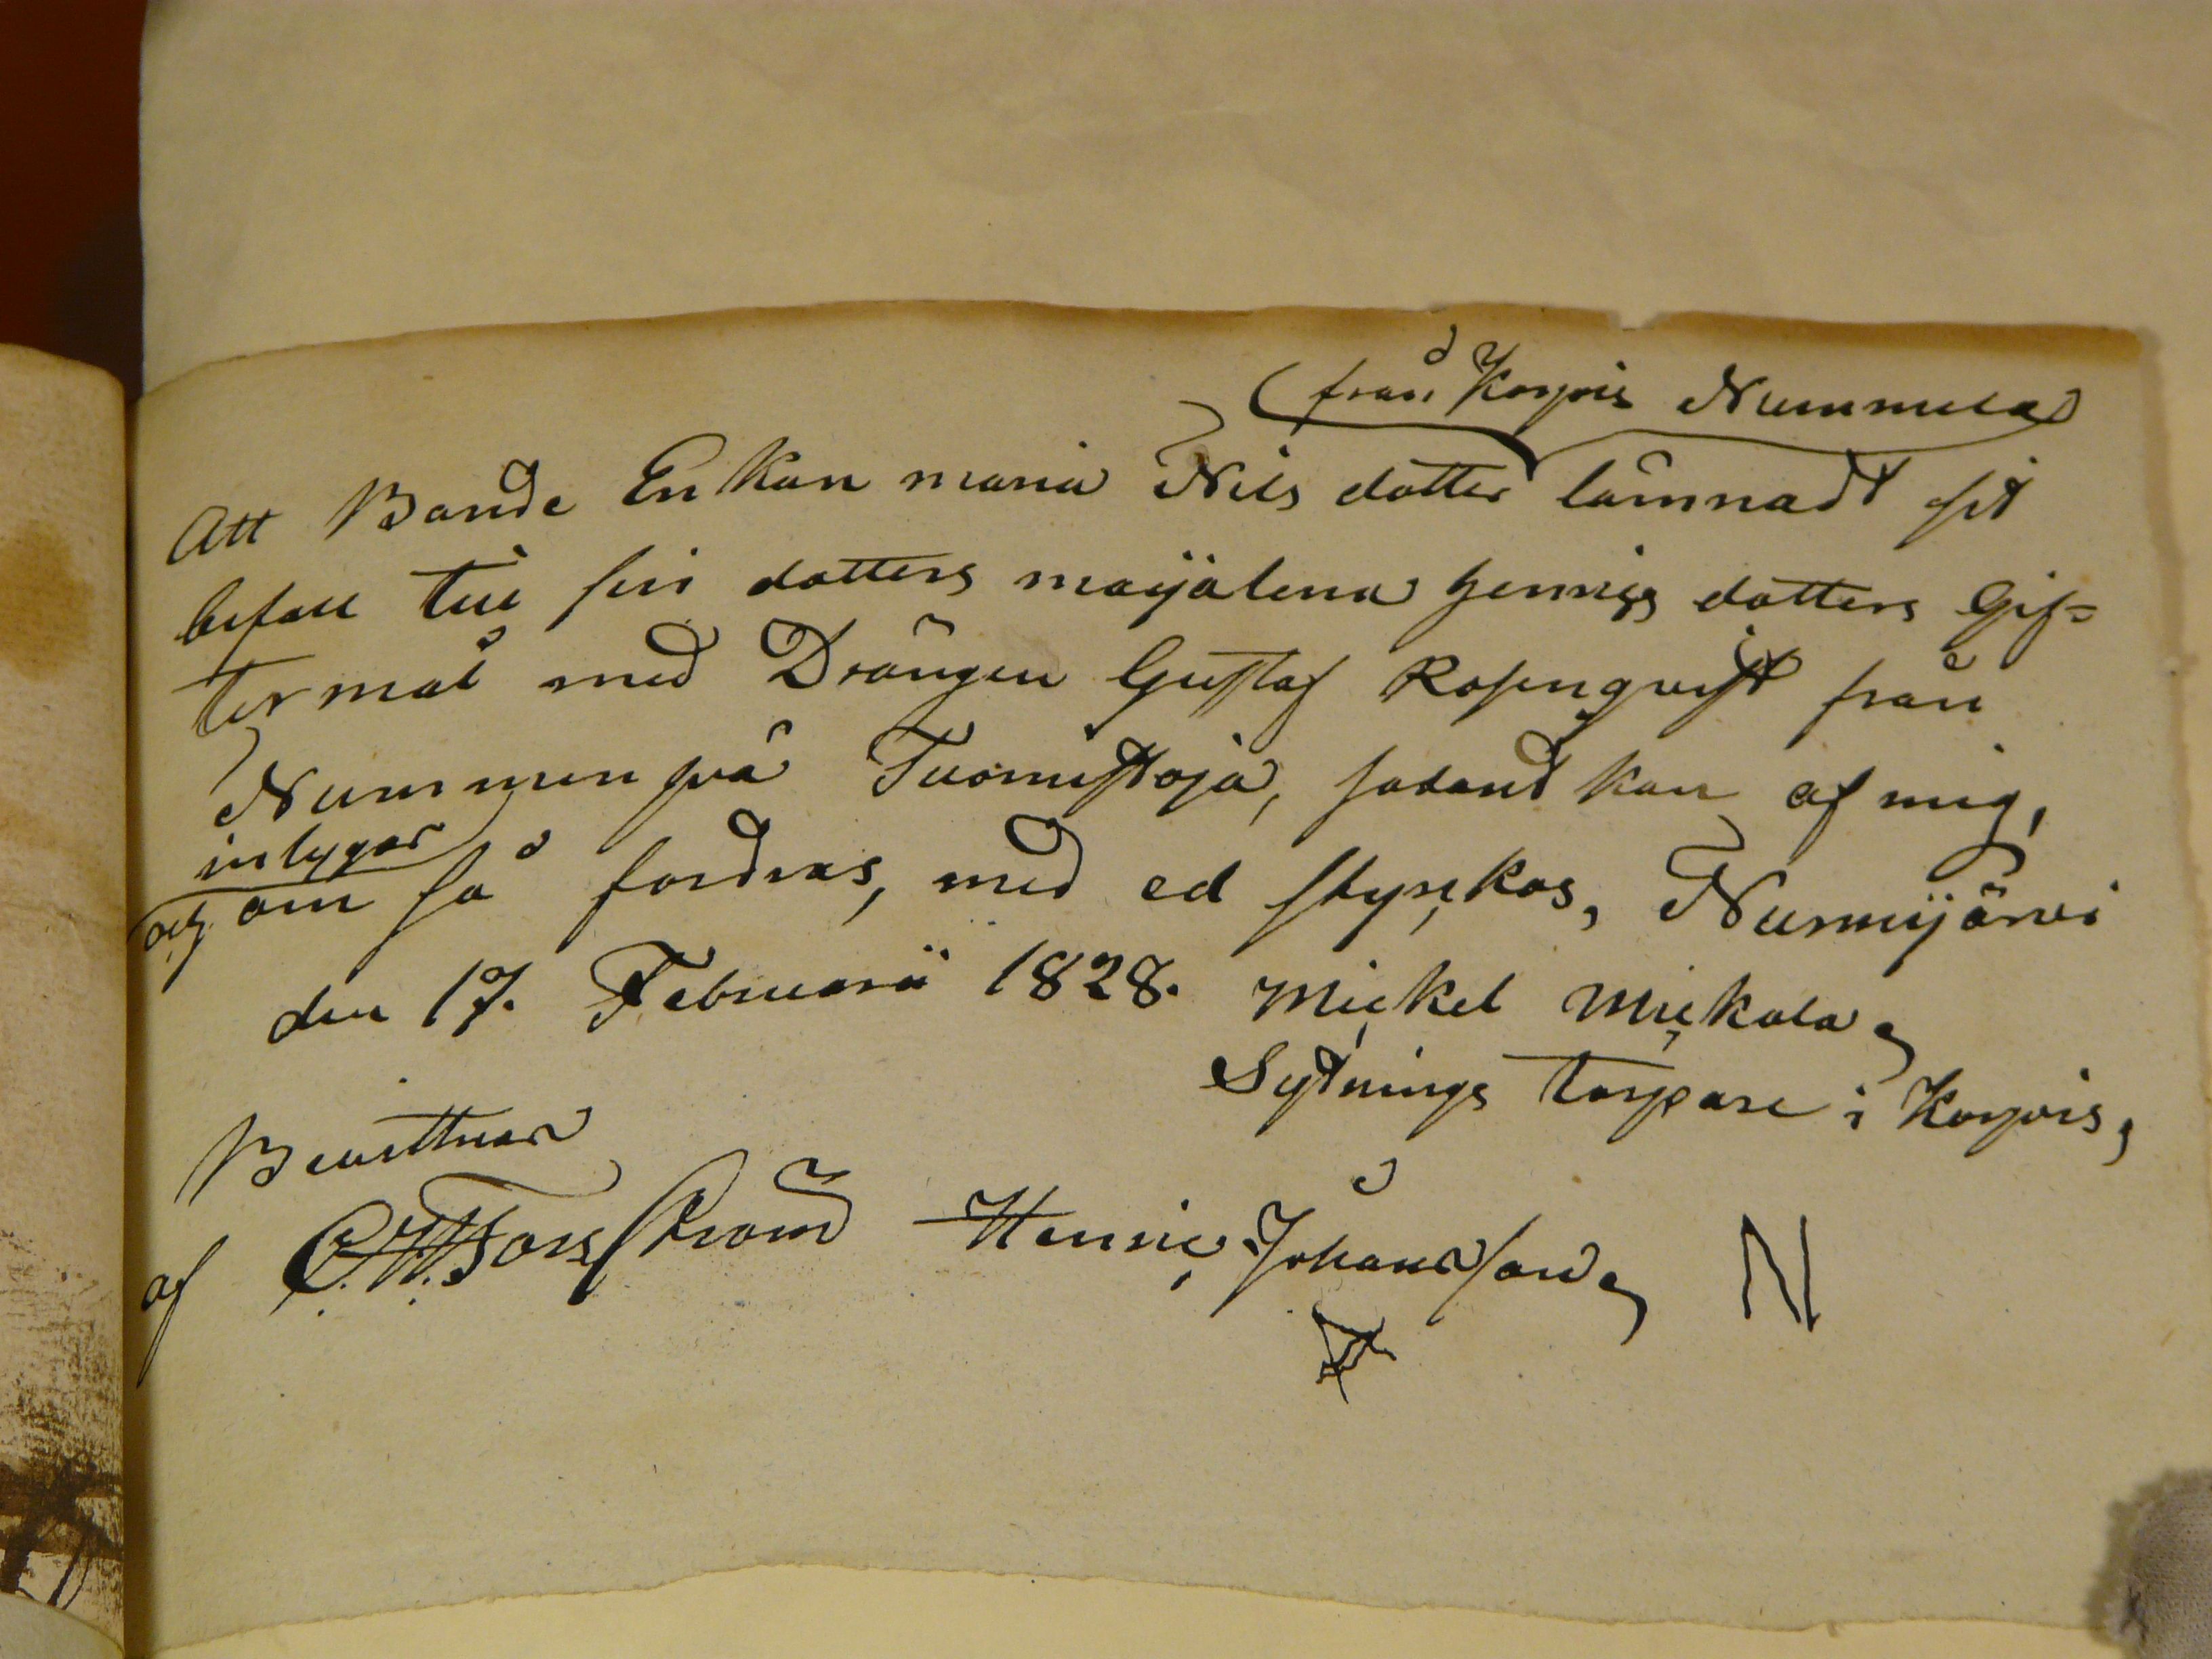 från Korpis Nummela
Att Bonde Enkan maria Nils dotter lämnadt sit
befall till sin dotters maijalena Henrigs dotters Gif=
termål med Drängen Gustaf Rosenqvist från
Nummenpää Tuomistoja, sådant kan af mig,
intygas
och om så fordras, med ed styrckas, Nurmijärvi
den 17. Februarii 1828. Mickel Mickala
Sytnings torpare i Korpis,
Bewittnar
af C. W. Forsström Henric Johansson N